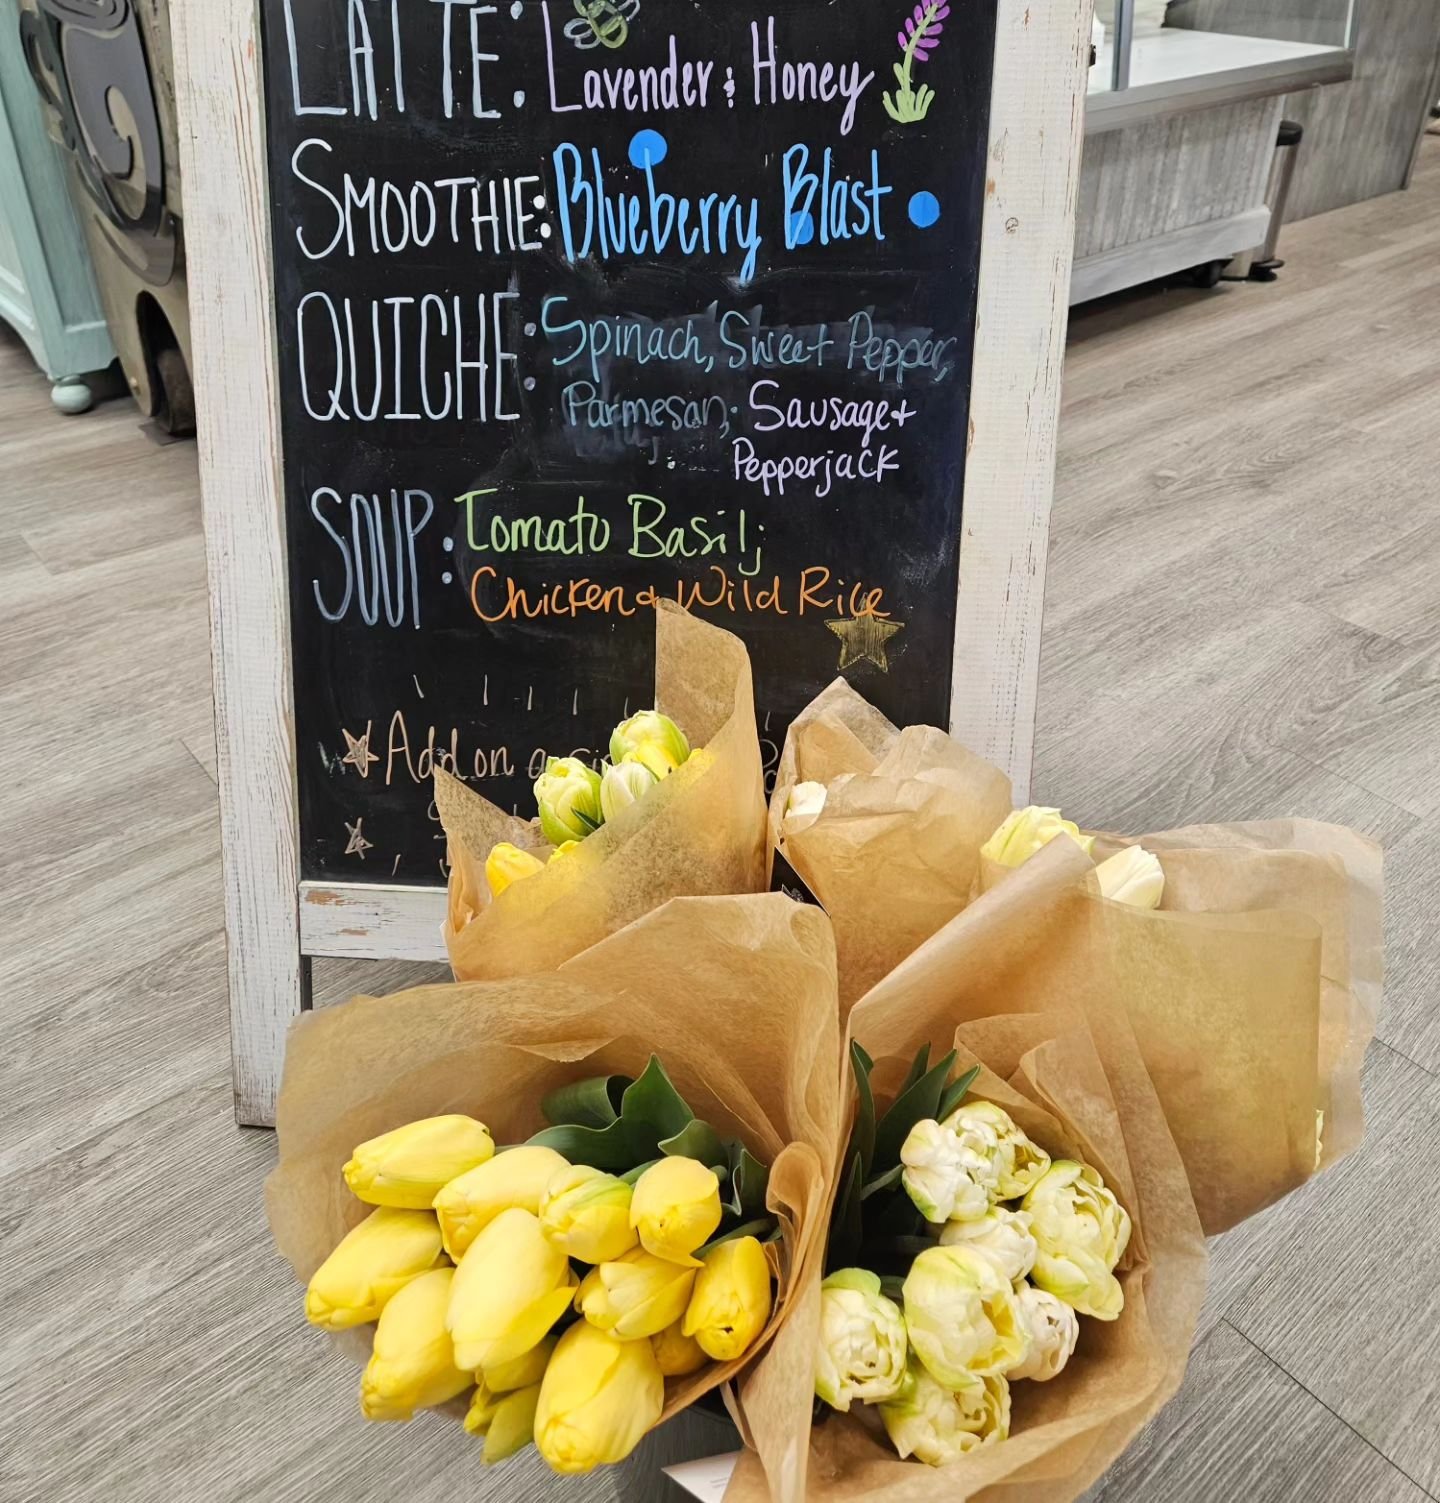 LATTE: Lavender & Honey
SMOOTHIE: Blueberry Blast
QUICHE: Spinach, Sweet Pepper,
Parmesan; Sausage +
Pepperjack
SOUP: Tomato Basil;
Chicken & Wild Rice
Add on a